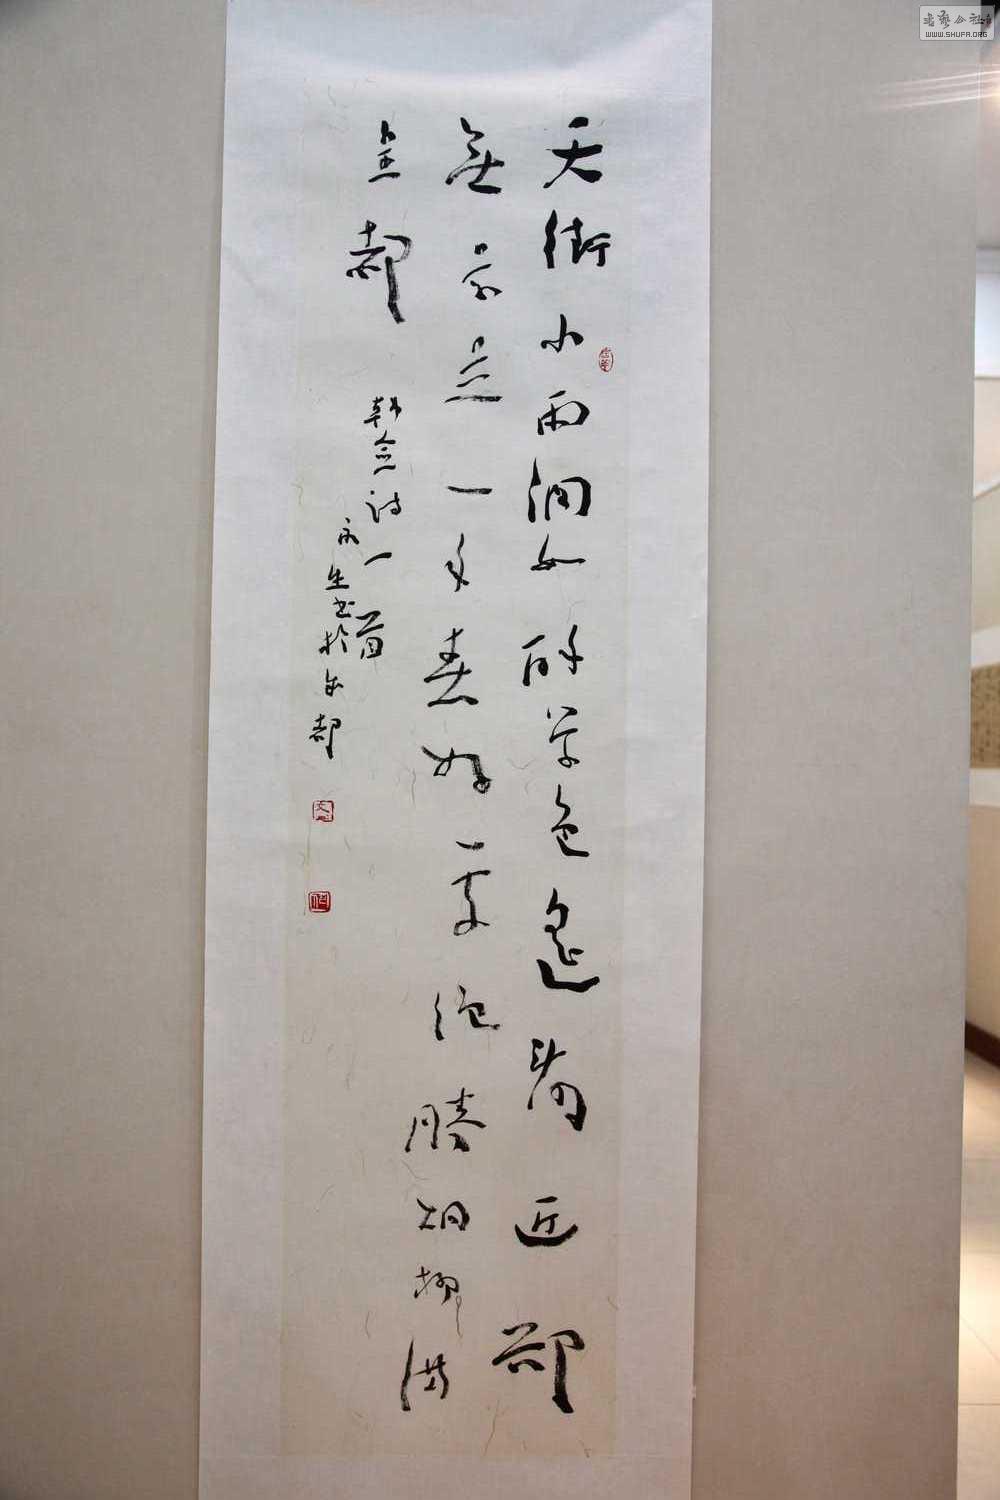 天街小雨潤如酥草色遙看近却
無最是一年春好處絕勝烟柳滿
皇都
韓愈詩一首
永生書於都
書藝公社
WWW.SHUFA.ORG